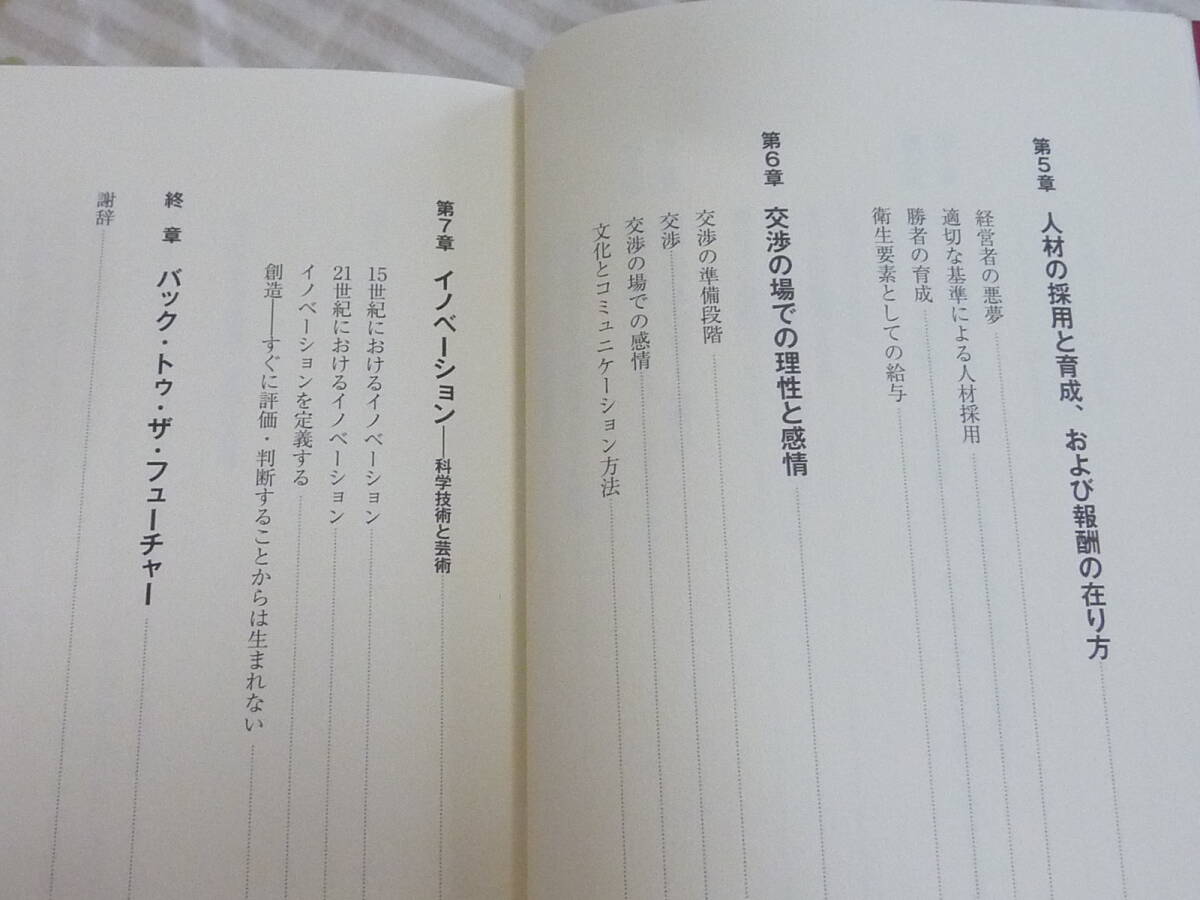 第5章　人材の採用と育成、および報酬の在り方
経営者の悪夢
適切な基準による人材採用
勝者の育成
衛生要素としての給与
第6章　交渉の場での理性と感情
交渉の準備段階
交渉
交渉の場での感情
文化とコミュニケーション方法
第7章　イノベーション——科学技術と芸術
15世紀におけるイノベーション
21世紀におけるイノベーション
イノベーションを定義する
創造——すぐに評価・判断することからは生まれない
終　章　バック・トゥ・ザ・フューチャー
謝辞